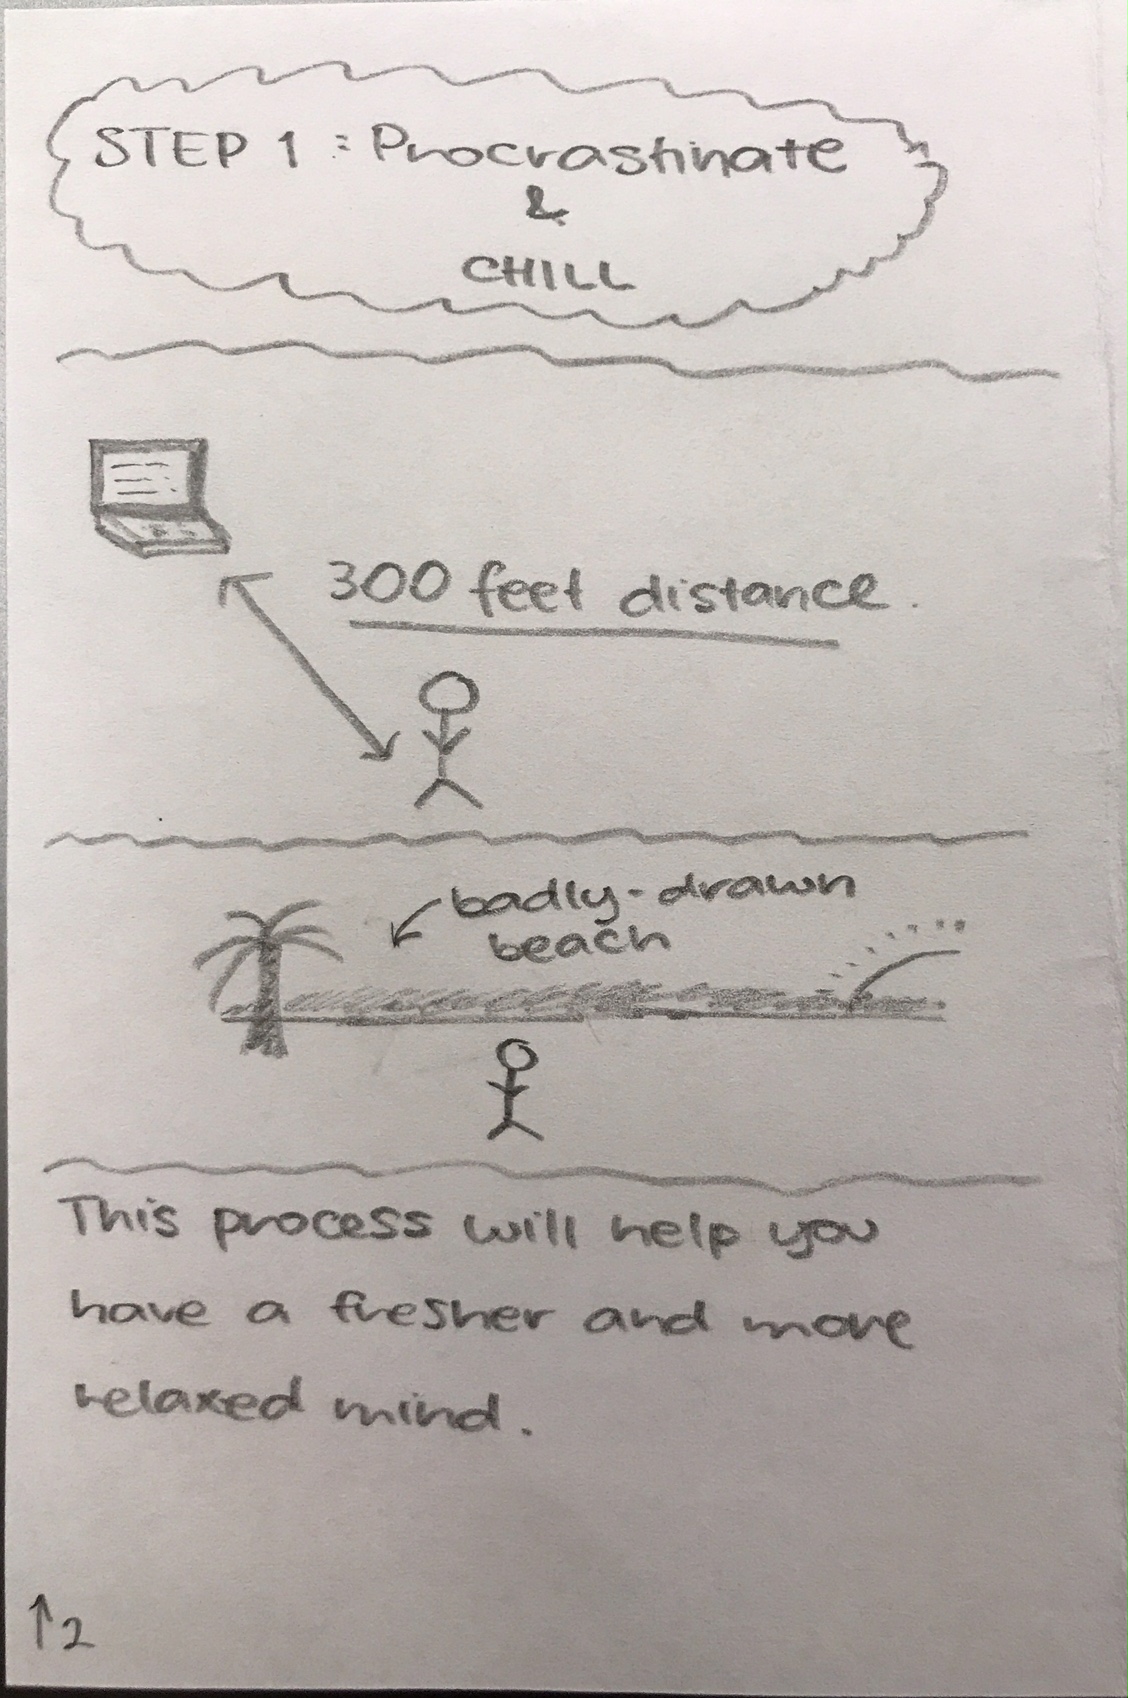 STEP 1 : Procrastinate
&
CHILL
300 feet distance.
badly-drawn
beach
This process will help you
have a fresher and more
relaxed mind.
↑2